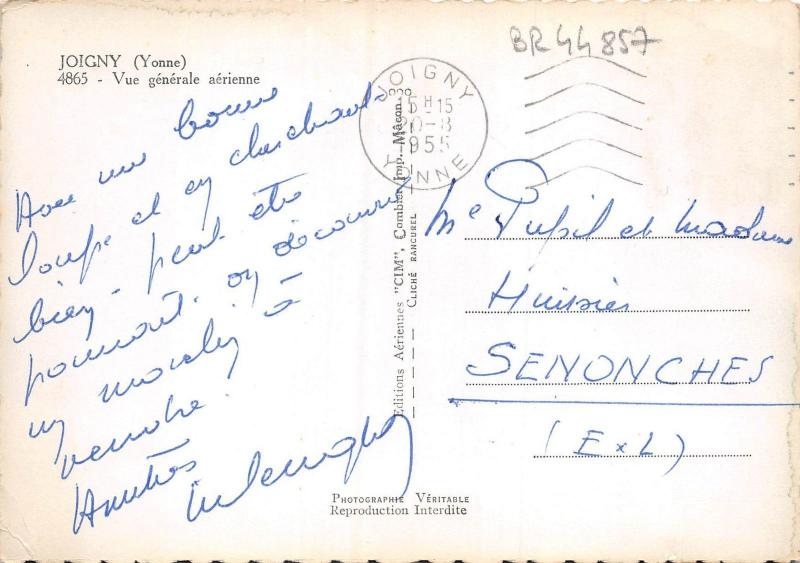 BR44857
JOIGNY (Yonne)
4865 - Vue générale aérienne
JOIGNY
15H15
20-8
1955
YONNE
Avec une bonne
loupe et en cherchant
bien - peut être
pourrait. on découvrir
un moulin à
vendre !
Amitiés
Editions Aériennes "CIM", Combier Imp. Mâcon
CLICHÉ RANCUREL
Me Pupil et Madame
Huissier
SENONCHES
(E & L)
PHOTOGRAPHIE VÉRITABLE
Reproduction Interdite